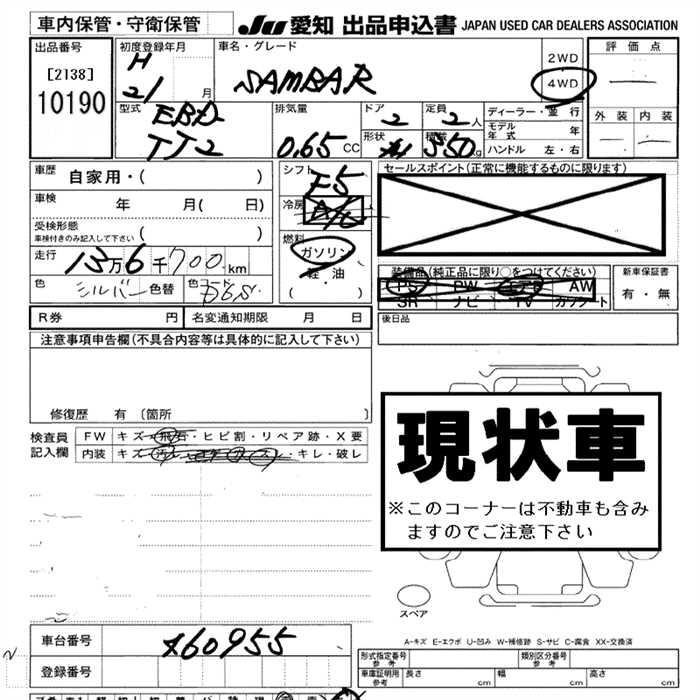 車内保管・守衛保管
JU 愛知 出品申込書 JAPAN USED CAR DEALERS ASSOCIATION
出品番号
[2138]
10190
初度登録年月
H
21 月
車名・グレード
SAMBAR
2WD
4WD
評価点
型式
EBD
TT2
排気量
0.65 CC
ドア
2
定員
2 人
形状
積載
350 kg
ディーラー・並行
モデル年式 年
ハンドル 左・右
外装 内装
車歴 自家用・( )
車検 年 月( 日)
受検形態
車検付きのみ記入して下さい ( )
走行 13万6千700km
色 シルバー 色替
カラーNo.
シフト
F5
冷房
A/C
燃料
ガソリン
軽・油
( )
セールスポイント(正常に機能するものに限ります)
装備品(純正品に限り○をつけてください)
PS PW エアB AW
SR ナビ TV
新車保証書
有・無
R券 円 名変通知期限 月 日
後日品
注意事項申告欄(不具合内容等は具体的に記入して下さい)
修復歴 有 〔箇所 〕
検査員
記入欄
FW キズ・飛石・ヒビ割・リペア跡・X要
内装 キズ・汚レ・ ・キレ・破レ
現状車
※このコーナーは不動車も含み
ますのでご注意下さい
スペア
A-キズ E-エクボ U-凹み W-補修跡 S-サビ C-腐食 XX-交換済
車台番号
登録番号
形式指定番号
参考
類別区分番号
参考
車庫証明用
参考
長さ cm 幅 cm 高さ cm